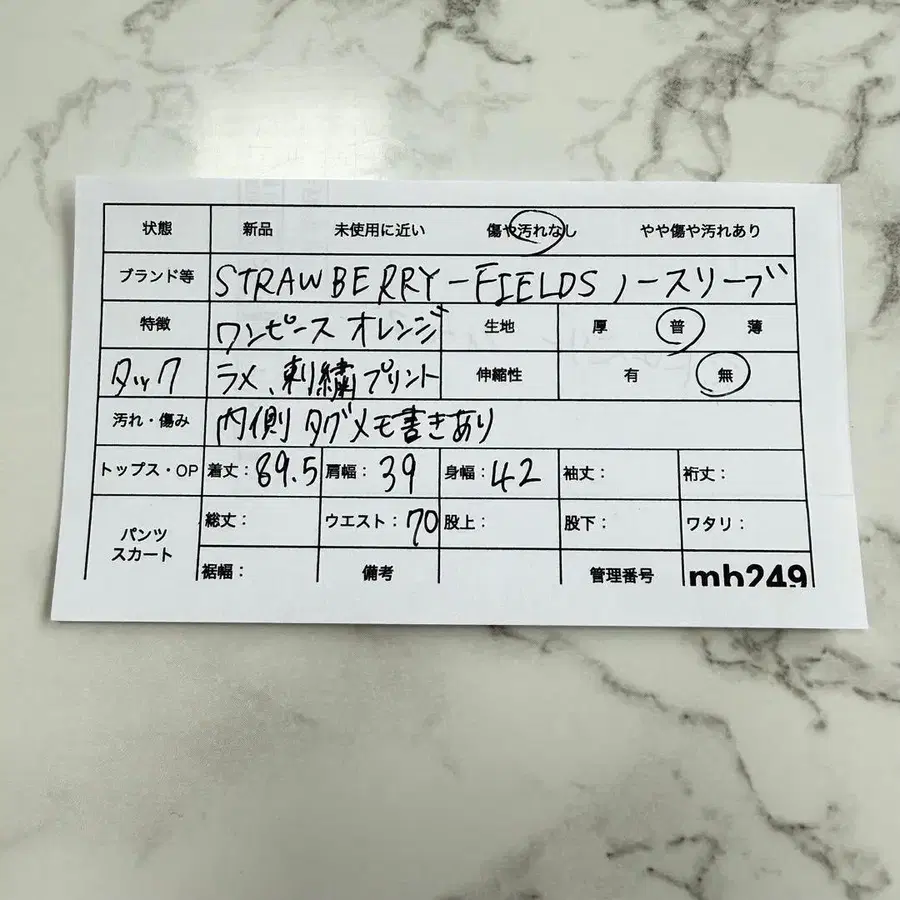 状態 新品 未使用に近い 傷や汚れなし やや傷や汚れあり
ブランド等 STRAWBERRY-FIELDS ノースリーブ
特徴 ワンピース オレンジ 生地 厚 普 薄
タック ラメ、刺繍プリント 伸縮性 有 無
汚れ・傷み 内側タグメモ書きあり
トップス・OP 着丈:89.5 肩幅:39 身幅:42 袖丈: 裄丈:
パンツ スカート 総丈: ウエスト:70 股上: 股下: ワタリ:
裾幅: 備考 管理番号 mb249